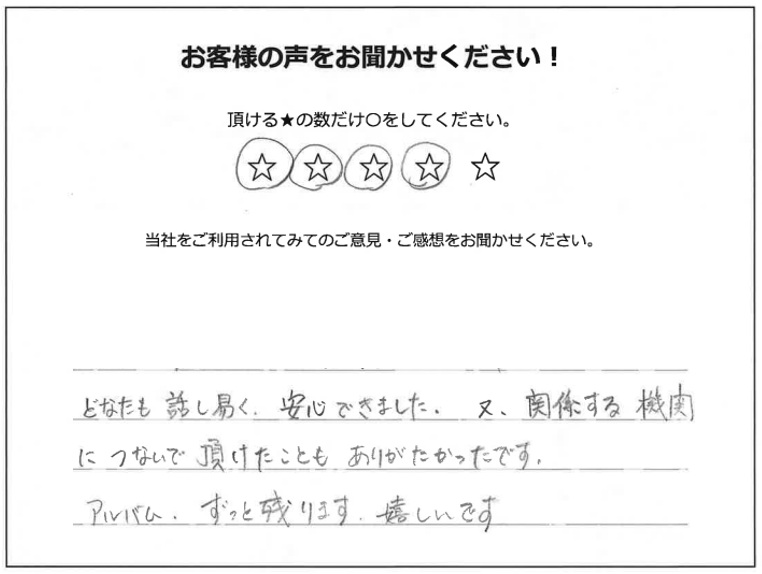 お客様の声をお聞かせください！
頂ける★の数だけ〇をしてください。
☆☆☆☆☆
当社をご利用されてみてのご意見・ご感想をお聞かせください。
どなたも話し易く、安心できました。又、関係する機関
につないで頂けたこともありがたかったです。
アルバム、ずっと残ります。嬉しいです